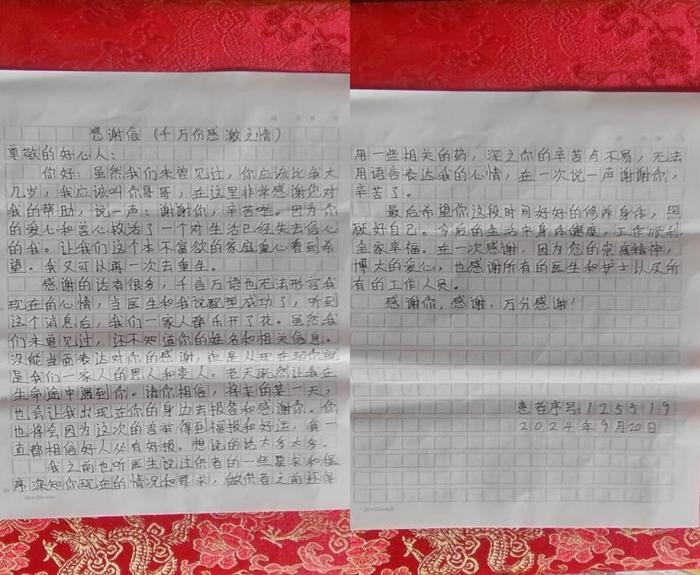 感谢信（千万份感激之情）
尊敬的好心人：
你好：虽然我们未曾见过，你应该比我大
几岁，我应该叫你哥哥，在这里非常感谢您对
我的帮助，说一声：谢谢你，辛苦啦。因为你
的爱心和善心救活了一个对生活已经失去信心
的我。让我们这个本不富欲的家庭重心看到希
望。我又可以再一次去重生。
感谢的话有很多，千言万语也无法形容我
现在的心情，当医生和我说配型成功了，听到
这个消息后，我们一家人都乐开了花。虽然我
们未曾见过，还不知道你的姓名和相关信息。
没能当面表达对你的感谢，但是从现在起你就
是我们一家人的恩人和贵人。老天既然让我在
生命途中遇到你。请你相信，将来的某一天，
也会让我出现在你的身边去报答和感谢你。你
也将会因为这次的善举得到福报和好运，我一
直都相信好人必有好报。想说的话太多太多。
我之前也听医生说过供者的一些要求和程
序深知你现在的情况和要求，做供者之前还得
用一些相关的药，深之你的辛苦与不易，无法
用语言表达我的心情，在一次说一声谢谢你，
辛苦了。
最后希望你这段时间好好的修养身体，照
顾好自己。今后的生活中身体健康，工作顺利
全家幸福。在一次感谢，因为您的崇高精神，
博大的爱心，也感谢所有的医生和护士以及所
有的工作人员。
感谢你，感谢，万分感谢！
患者序号：125319
2024年9月20日